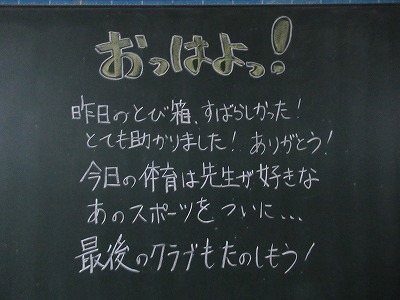 おっはよっ!
昨日のとび箱、すばらしかった!
とても助かりました! ありがとう!
今日の体育は先生が好きな
あのスポーツをついに...
最後のクラブもたのしもう!